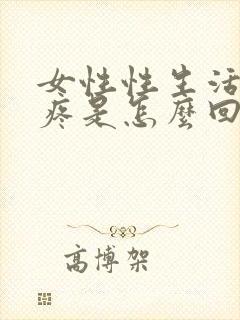 女性性生活
疼是怎麼回
高博架